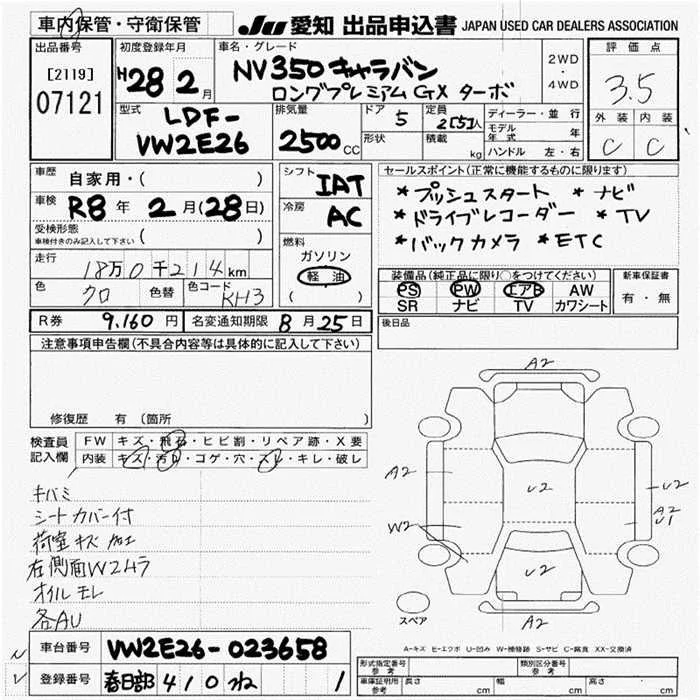 車内保管・守衛保管
JU 愛知 出品申込書 JAPAN USED CAR DEALERS ASSOCIATION
出品番号
[2119]
07121
初度登録年月
H28年2月
車名・グレード
NV350 キャラバン
ロングプレミアムGX ターボ
2WD
・
4WD
評価点
3.5
外装 内装
C C
型式
LDF-
VW2E26
排気量
2500CC
ドア 5
形状
定員 2(5)人
積載 kg
ディーラー・並行
モデル年式 年
ハンドル 左・右
車歴
自家用・( )
車検
R8年 2月(28日)
受検形態
車検付きのみ記入して下さい ( )
走行
18万0千214km
色 クロ 色替 色コード KH3
シフト
IAT
冷房
AC
燃料
ガソリン
軽油
( )
セールスポイント(正常に機能するものに限ります)
*プッシュスタート *ナビ
*ドライブレコーダー *TV
*バックカメラ *ETC
装備品(純正品に限り○をつけてください)
PS PW エアB AW
SR ナビ TV カワシート
新車保証書
有・無
R券 9,160円 名変通知期限 8月25日
後日品
注意事項申告欄(不具合内容等は具体的に記入して下さい)
修復歴 有(箇所
検査員
記入欄
FW キズ・飛石・ヒビ割・リペア跡・X要
内装 キズ・汚れ・コゲ・穴・スレ・キレ・破レ
キバミ
シートカバー付
荷室キズ 加工
右側面W2ムラ
オイルモレ
各AU
A2
A2
U2
U2
A2
U1
W2
U2
A2
スペア
A-キズ E-エクボ U-凹み W-補修跡 S-サビ C-腐食 XX-交換済
車台番号 VW2E26-023658
登録番号 春日部 410 ね 1
形式指定番号 参考
類別区分番号 参考
車庫証明用 参考 長さ cm 幅 cm 高さ cm